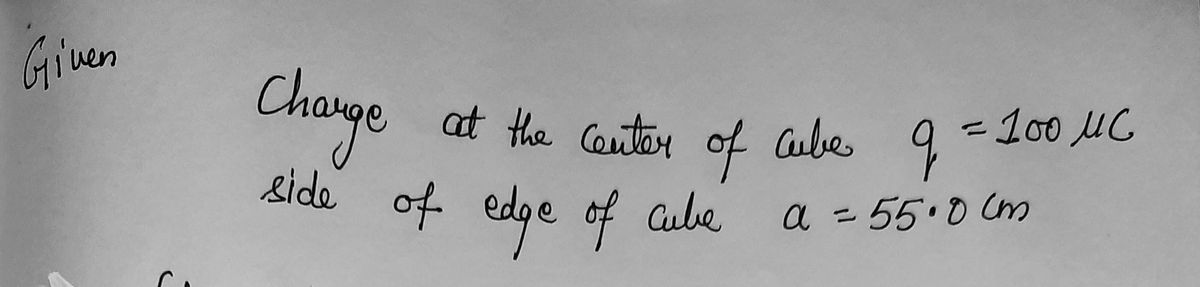 Given
Charge at the Center of Cube q = 100 μC
side of edge of Cube a = 55.0 cm